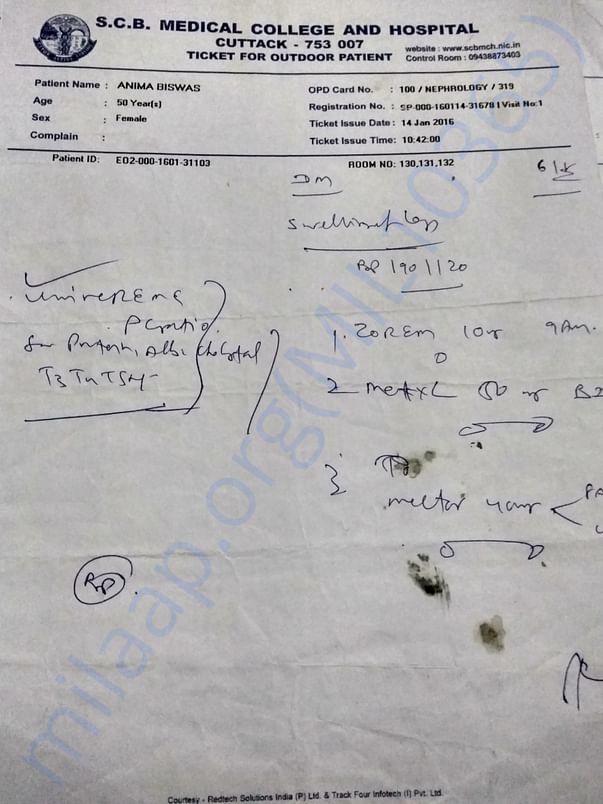 S.C.B. MEDICAL COLLEGE AND HOSPITAL
CUTTACK - 753 007
TICKET FOR OUTDOOR PATIENT
website : www.scbmch.nic.in
Control Room : 09438873403
Patient Name : ANIMA BISWAS
Age : 50 Year(s)
Sex : Female
Complain :
OPD Card No. : 100 / NEPHROLOGY / 319
Registration No. : SP-000-160114-31678 | Visit No:1
Ticket Issue Date : 14 Jan 2016
Ticket Issue Time : 10:42:00
Patient ID: EO2-000-1601-31103
ROOM NO: 130,131,132
DM
Swelling of leg
BP 190/120
T3 T4 TSH
1. ZOREM 10 9AM.
2 50
3
BP
milaap.org(MIL-110365)
Courtesy - Redtech Solutions India (P) Ltd. & Track Four Infotech (I) Pvt. Ltd.